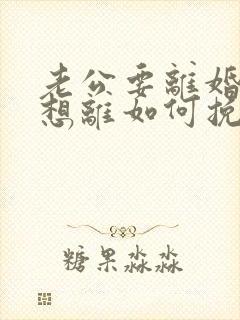 老公要離婚
想離如何挽
糖果淼淼